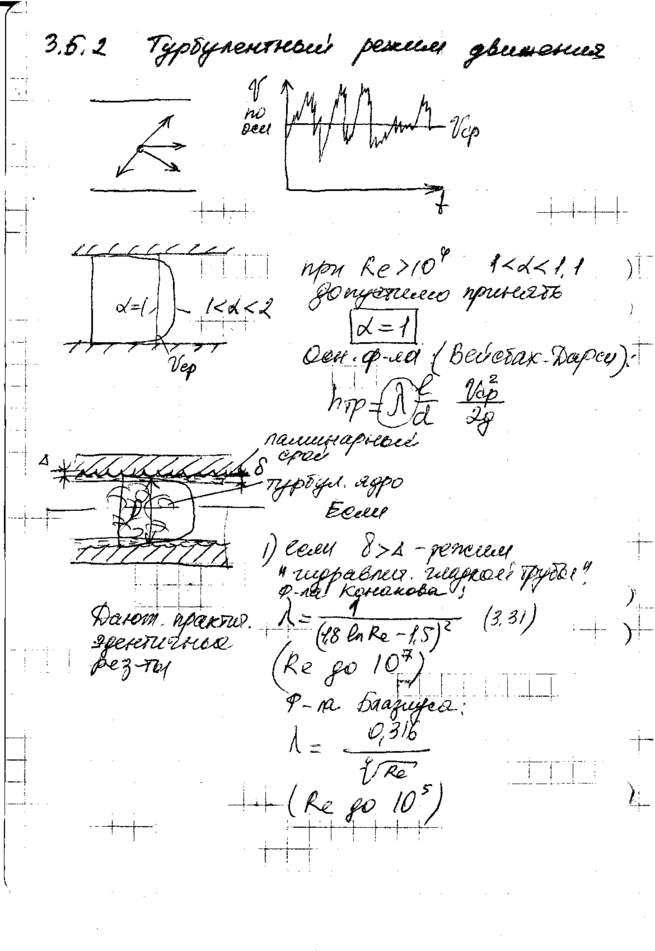 3.5.2 Турбулентный режим движения
V
по
оси
Vср
t
α=1
1<α<2
Vср
при Re>10⁴ 1<α<1,1
допустимо принять
α=1
Осн. ф-ла (Вейсбах-Дарси):
hтр = λ l/d Vср²/2g
ламинарный
слой
Δ
δ
турбул. ядро
Если
1) если δ>Δ - режим
"гидравлич. гладкой трубы".
Ф-ла Конакова:
λ = 1/(1,8 ln Re - 1,5)² (3.31)
(Re до 10⁷)
Дают. практич.
идентичные
рез-ты
Ф-ла Блазиуса:
λ = 0,316/∜Re
(Re до 10⁵)